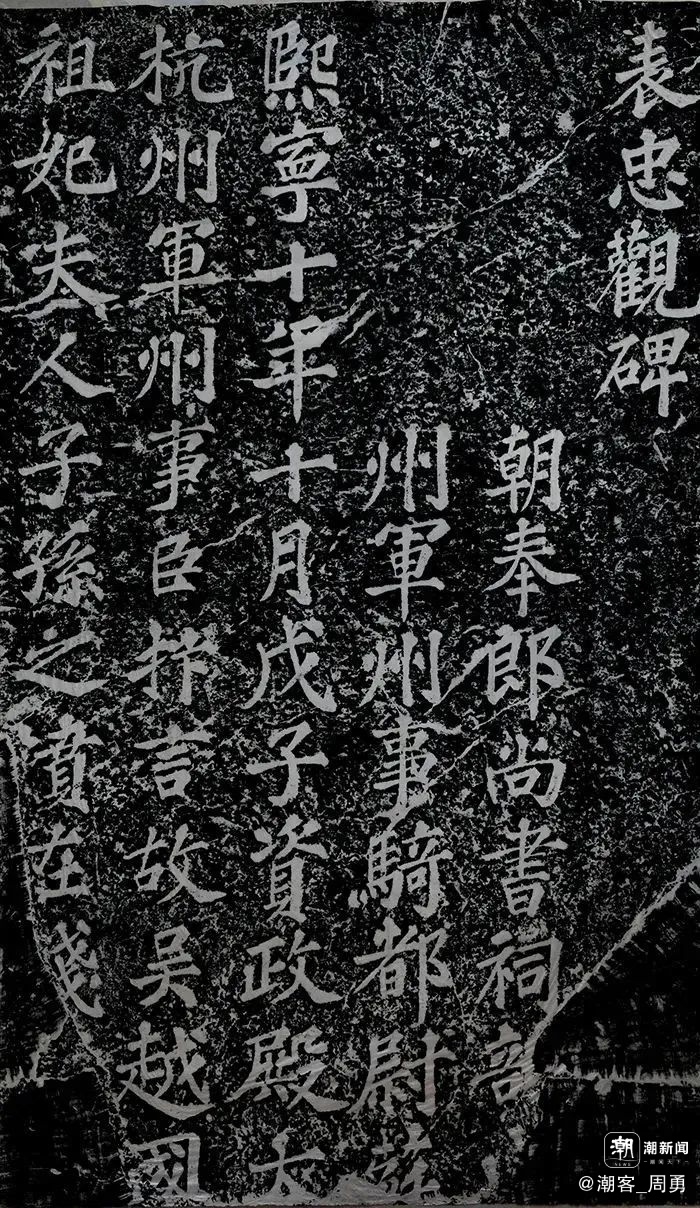 表忠觀碑
朝奉郎尚書祠部
州軍州事騎都尉蘇
熙寧十年十月戊子資政殿大
杭州軍州事臣抃言故吳越國
祖妃夫人子孫之墳在錢
潮 潮新闻
NEWS
@潮客_周勇